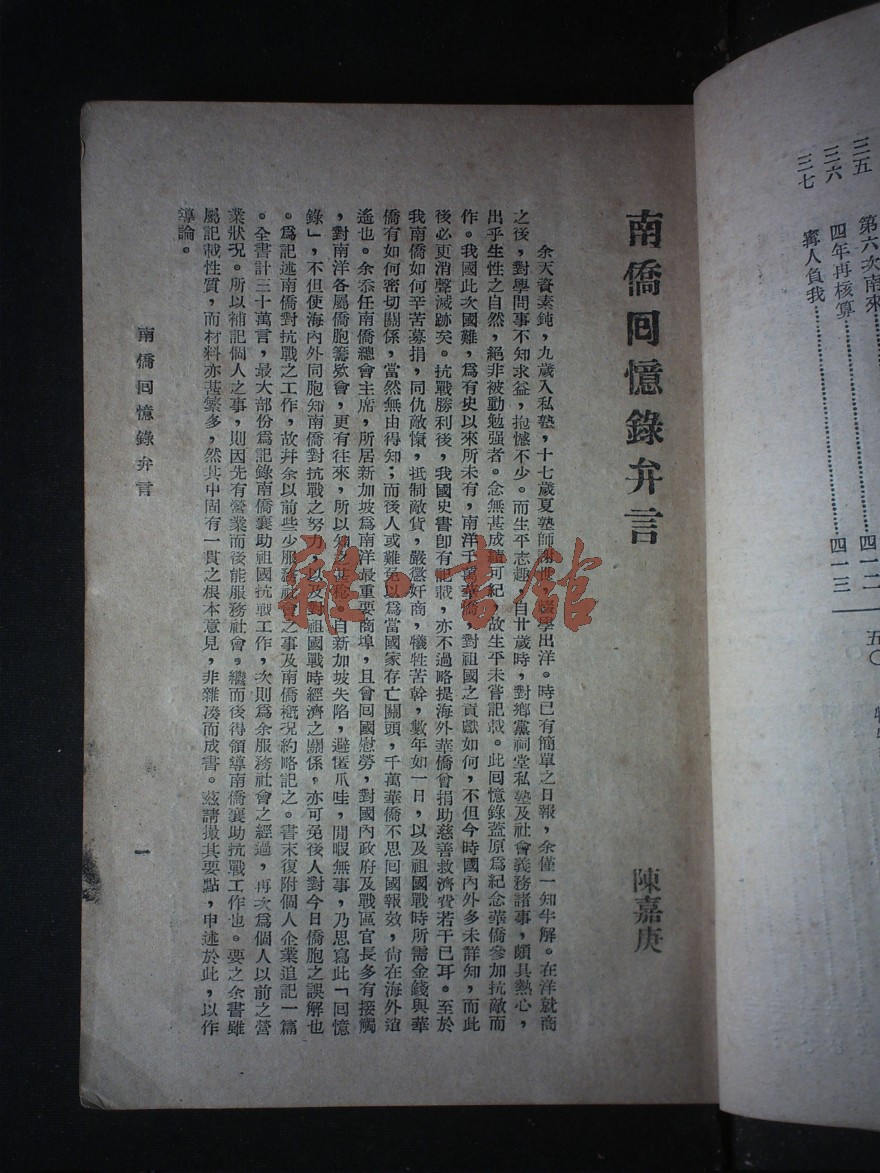 三五 第六次南來
三六 四年再核算……………四一二
三七 寗人負我………………四一三
五〇
南僑回憶錄弁言
陳嘉庚
余天資素鈍，九歲入私塾，十七歲夏塾師謝世，輟學出洋。時已有簡單之日報，余僅一知半解。在洋就商
之後，對學問事不知求益，抱憾不少。而生平志趣，自廿歲時，對鄉黨祠堂私塾及社會義務諸事，頗具熱心，
出乎生性之自然，絕非被動勉强者。念無甚成績可紀，故生平未嘗記載。此回憶錄蓋原爲紀念華僑參加抗敵而
作。我國此次國難，爲有史以來所未有，南洋千萬華僑，對祖國之貢獻如何，不但今時國內外多未詳知，而此
後必更消聲滅跡矣。抗戰勝利後，我國史書卽有記載，亦不過略提海外華僑曾捐助慈善救濟費若干已耳。至於
我南僑如何辛苦募捐，同仇敵愾，抵制敵貨，嚴懲奸商，犧牲苦幹，數年如一日，以及祖國戰時所需金錢與華
僑有如何密切關係，當然無由得知；而後人或難免以爲當國家存亡關頭，千萬華僑不思回國報效，尙在海外逍
遙也。余忝任南僑總會主席，所居新加坡爲南洋最重要商埠，且曾回國慰勞，對國內政府及戰區官長多有接觸
，對南洋各屬僑胞籌賑會，更有往來，所以知之甚稔。自新加坡失陷，避匿爪哇，閒暇無事，乃思寫此「回憶
錄」，不但使海內外同胞知南僑對抗戰之努力，以及對祖國戰時經濟之關係，亦可免後人對今日僑胞之誤解也
。爲記述南僑對抗戰之工作，故幷余以前些少服務社會之事及南僑槪況約略記之。書末復附個人企業追記一篇
。全書計三十萬言，最大部份爲記錄南僑襄助祖國抗戰工作，次則爲余服務社會之經過，再次爲個人以前之營
業狀況。所以補記個人之事，則因先有營業而後能服務社會，繼而後得領導南僑襄助抗戰工作也。要之余書雖
屬記載性質，而材料亦甚繁多，然其中固有一貫之根本意見，非雜湊而成書。茲請撮其要點，申述於此，以作
導論。
南僑回憶錄弁言
一